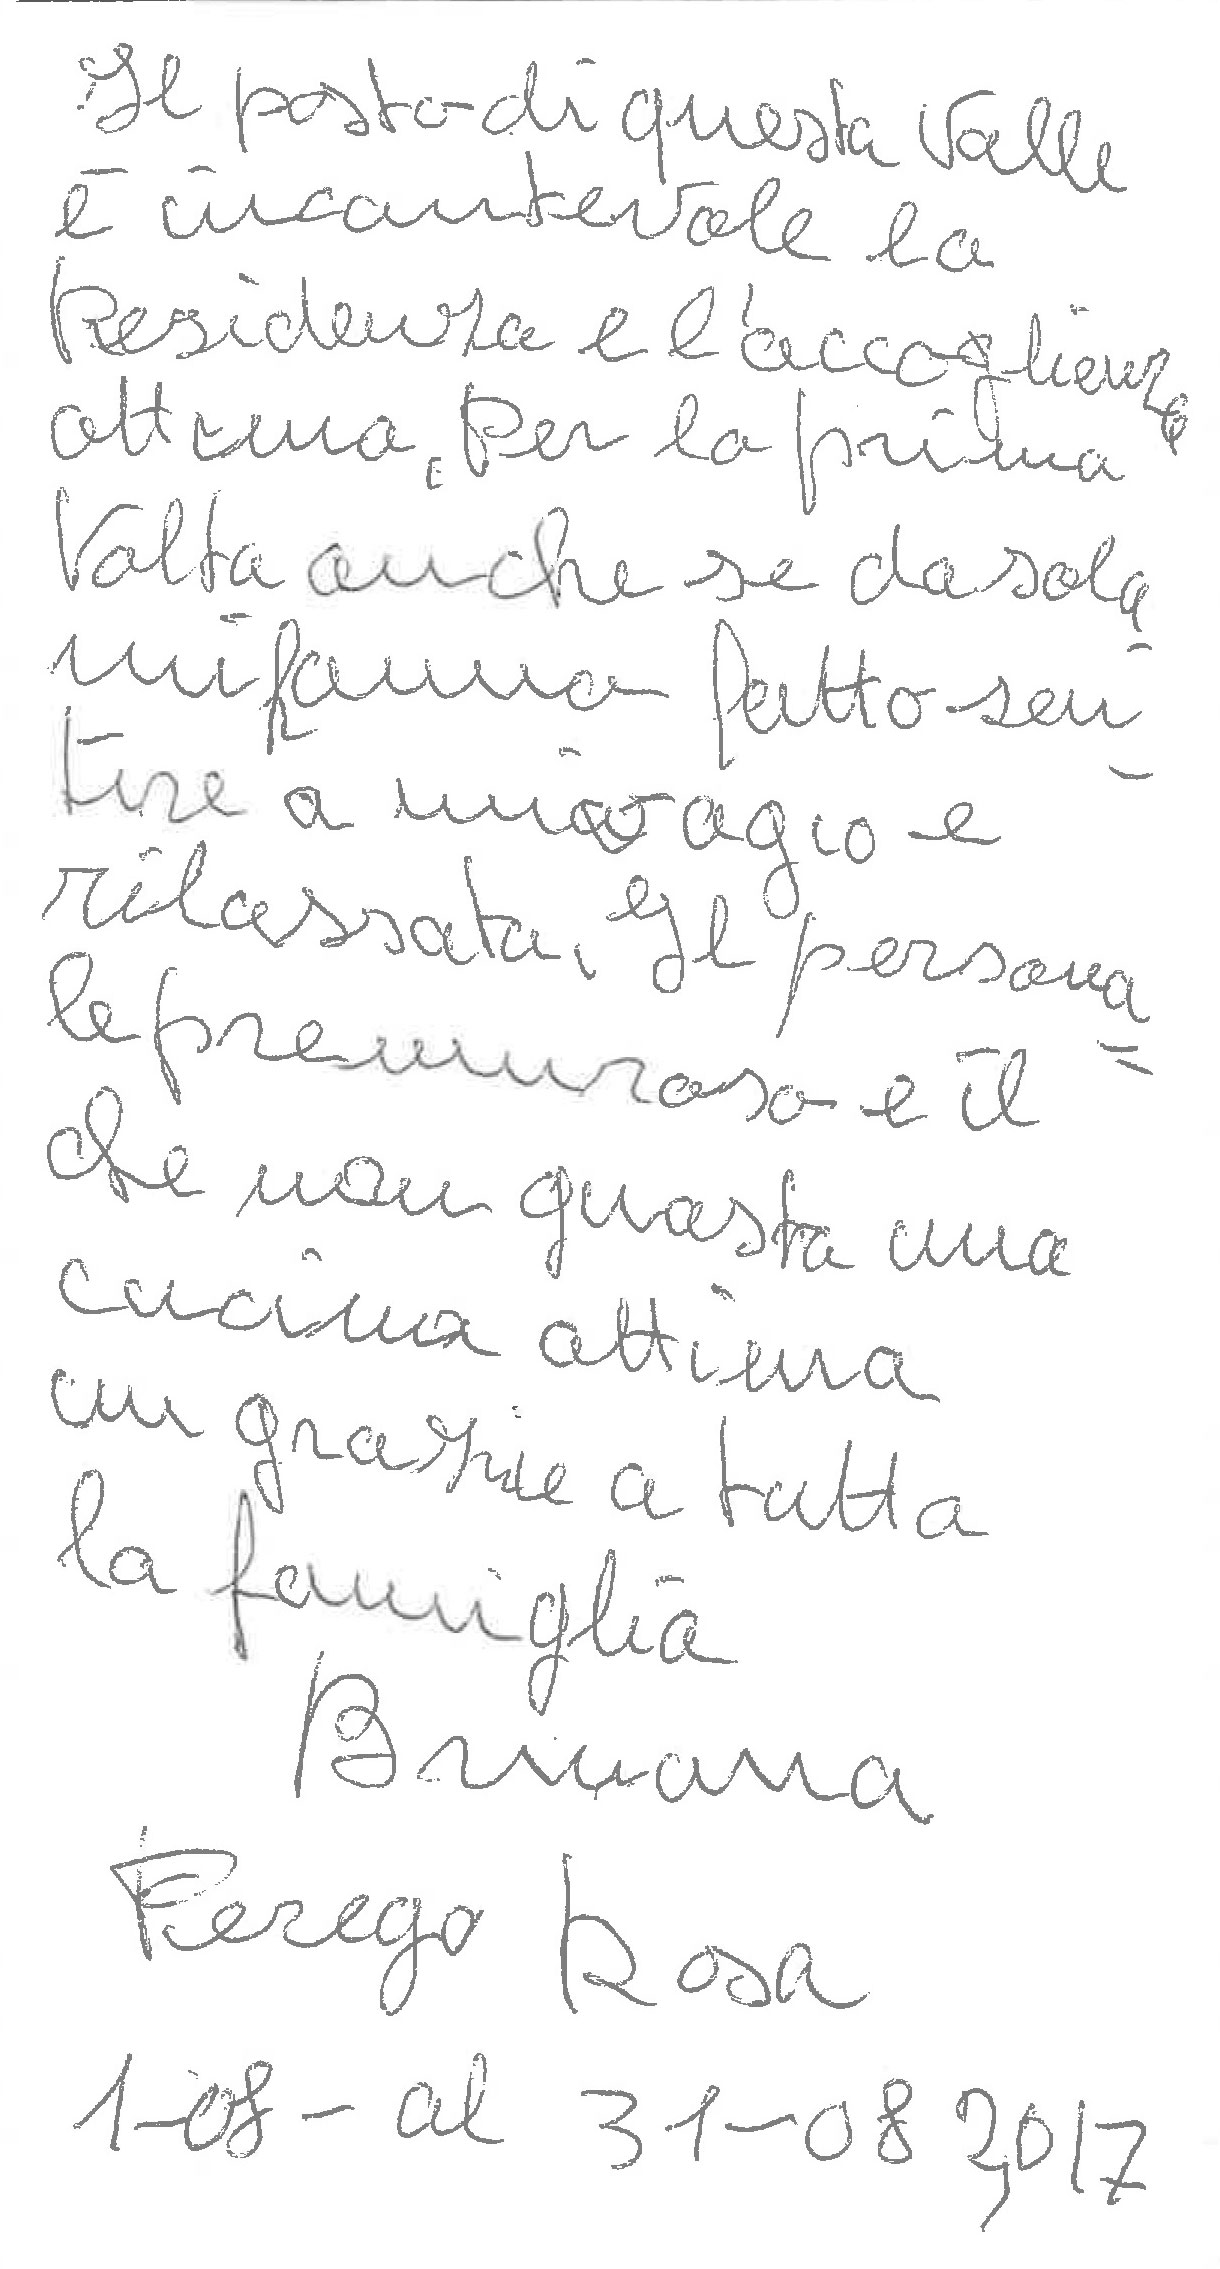 Il posto di questa Valle
è incantevole la
Residenza e l'accoglienza
ottima, Per la prima
Volta anche se da sola
mi fanno fatto sen
tire a mio agio e
rilassata, Il persona
le premuroso e il
che non guasta una
cucina ottima
un grazie a tutta
la famiglia
Perego Rosa
1-08- al 31-08 2017